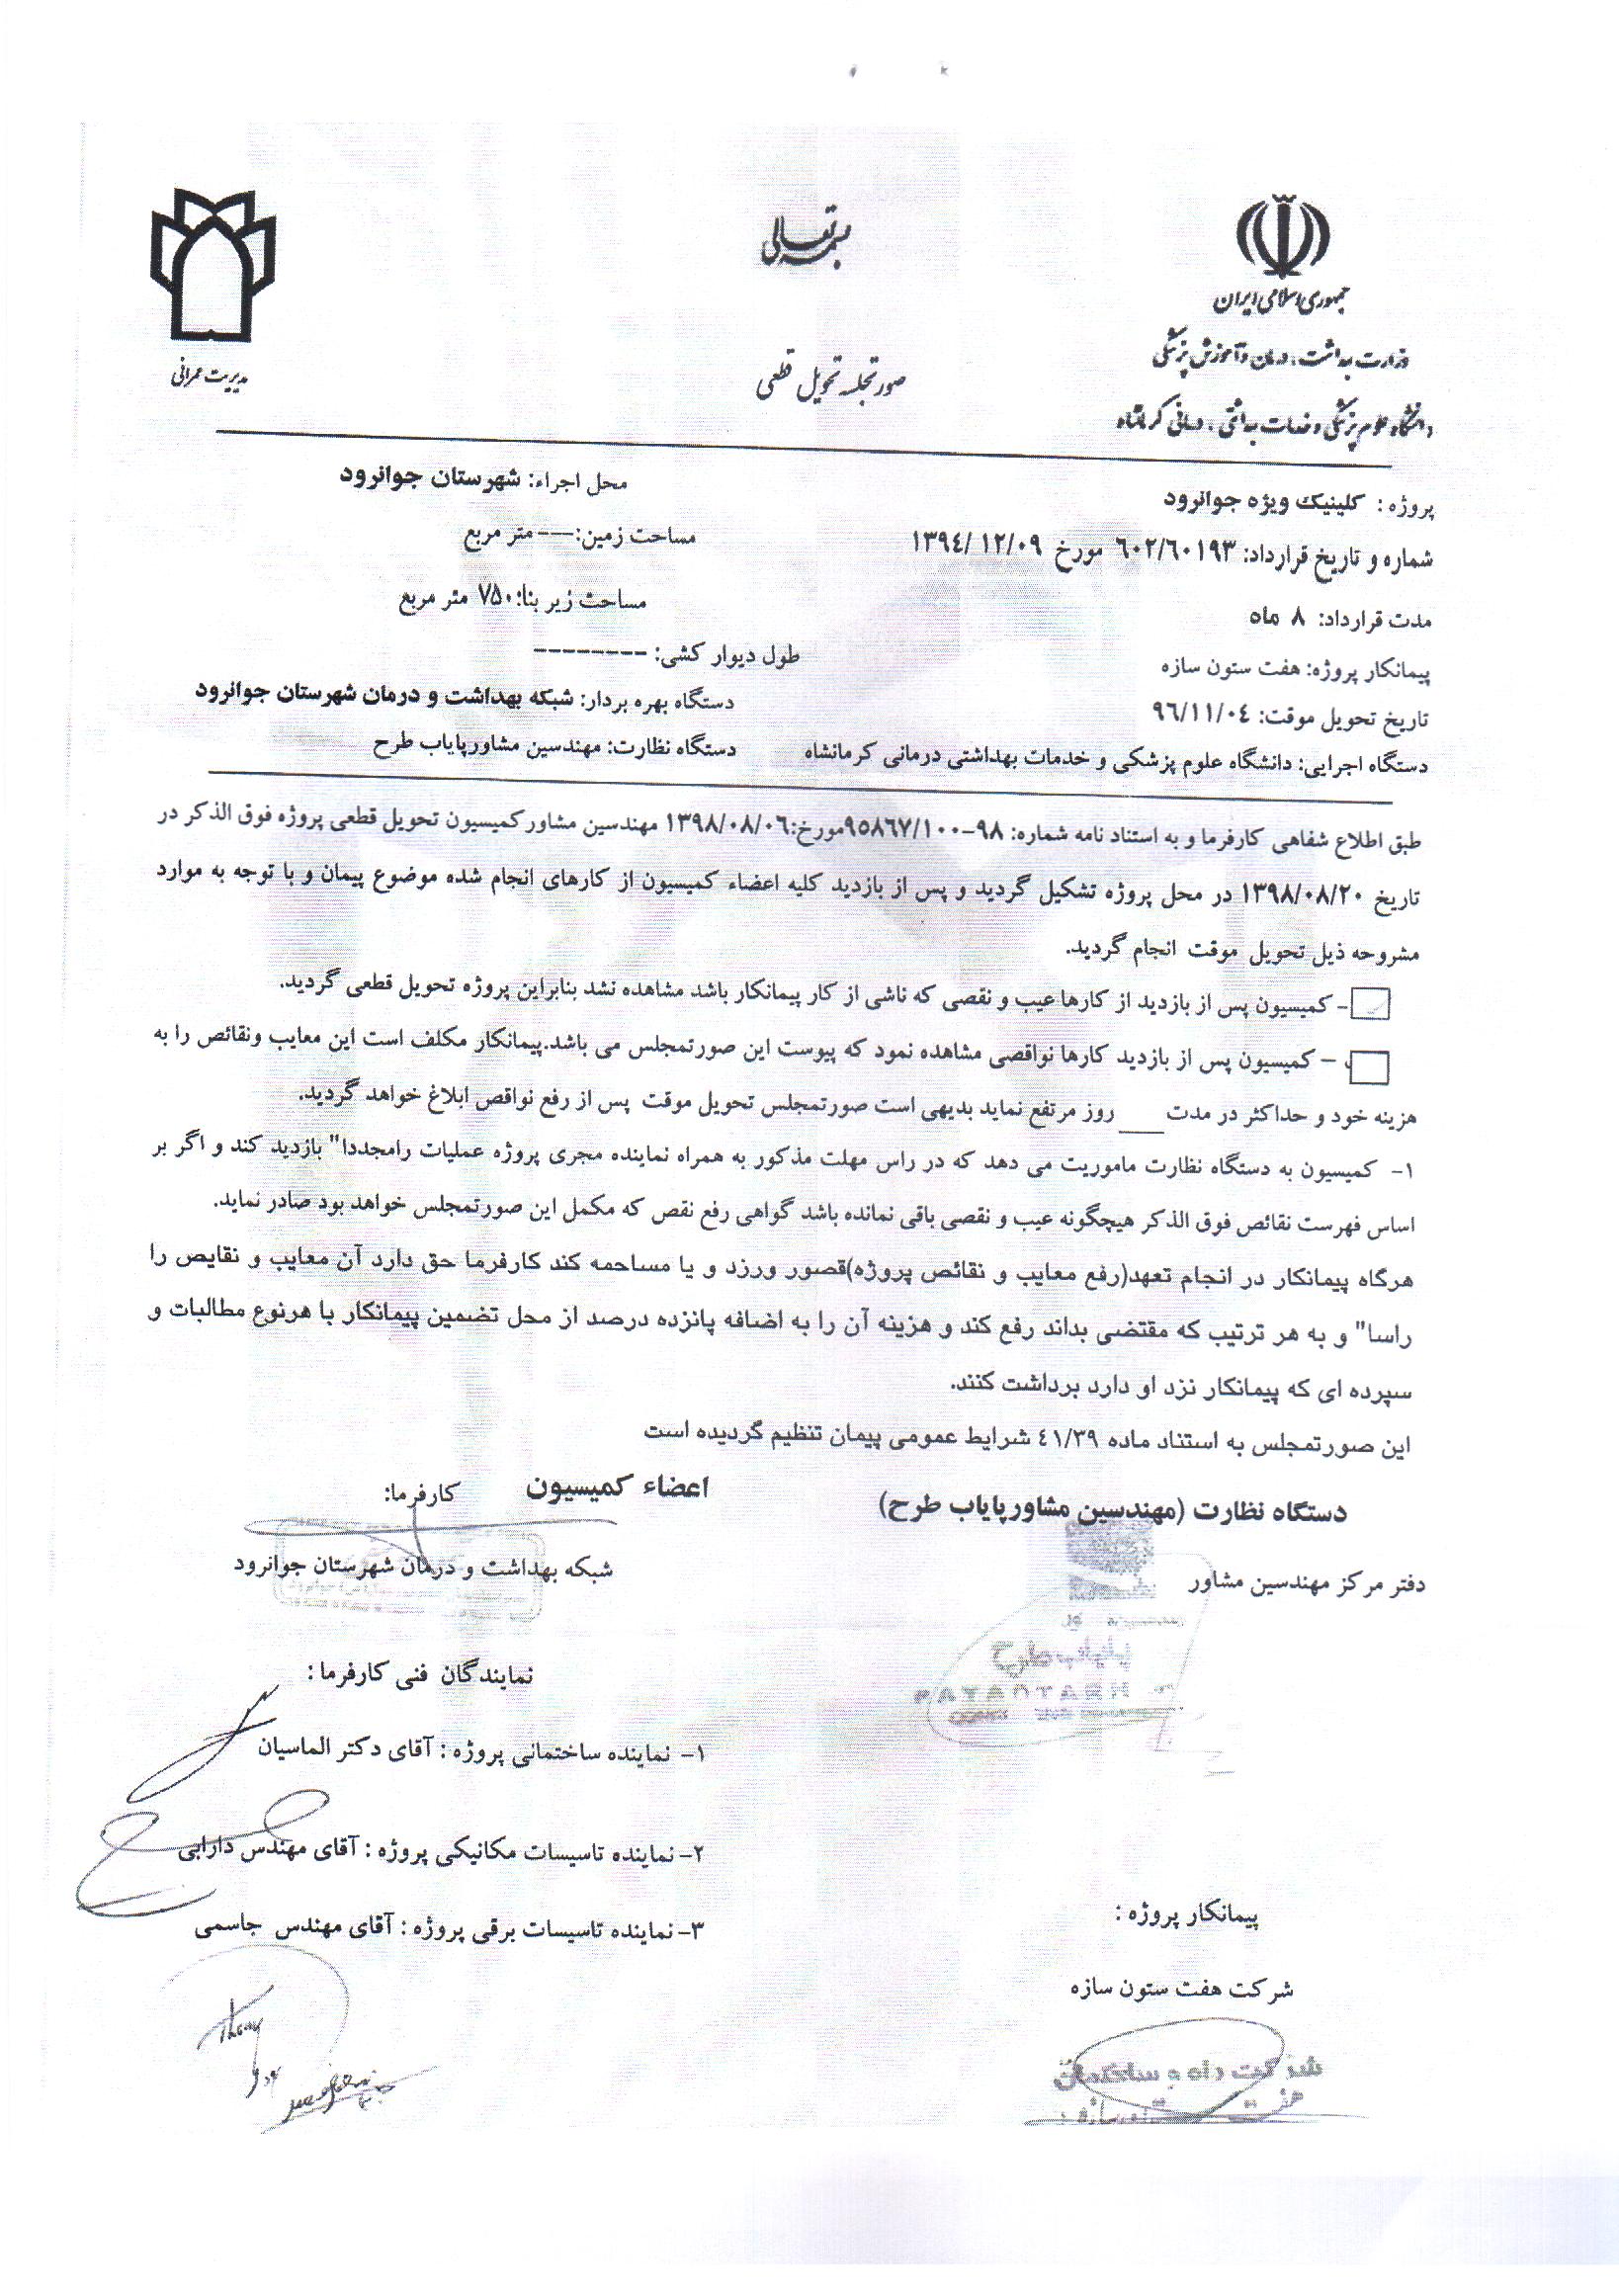 بسمه تعالی
جمهوری اسلامی ایران
وزارت بهداشت، درمان و آموزش پزشکی
دانشگاه علوم پزشکی و خدمات بهداشتی، درمانی کرمانشاه
صورتجلسه تحویل قطعی
مدیریت عمرانی
پروژه : کلینیک ویژه جوانرود
محل اجراء: شهرستان جوانرود
شماره و تاریخ قرارداد: ۶۰۲/۶۰۱۹۳ مورخ ۱۳۹۴/۱۲/۰۹
مساحت زمین:--- متر مربع
مدت قرارداد: ۸ ماه
مساحت زیر بنا:۷۵۰ متر مربع
پیمانکار پروژه: هفت ستون سازه
طول دیوار کشی: --------
تاریخ تحویل موقت: ۹۶/۱۱/۰۴
دستگاه بهره بردار: شبکه بهداشت و درمان شهرستان جوانرود
دستگاه اجرایی: دانشگاه علوم پزشکی و خدمات بهداشتی درمانی کرمانشاه
دستگاه نظارت: مهندسین مشاورپایاب طرح
طبق اطلاع شفاهی کارفرما و به استناد نامه شماره: ۹۸-۹۵۸۶۷/۱۰۰مورخ:۱۳۹۸/۰۸/۰۶ مهندسین مشاورکمیسیون تحویل قطعی پروژه فوق الذکر در
تاریخ ۱۳۹۸/۰۸/۲۰ در محل پروژه تشکیل گردید و پس از بازدید کلیه اعضاء کمیسیون از کارهای انجام شده موضوع پیمان و با توجه به موارد
مشروحه ذیل تحویل موقت انجام گردید.
- کمیسیون پس از بازدید از کارها عیب و نقصی که ناشی از کار پیمانکار باشد مشاهده نشد بنابراین پروژه تحویل قطعی گردید.
– کمیسیون پس از بازدید کارها نواقصی مشاهده نمود که پیوست این صورتمجلس می باشد.پیمانکار مکلف است این معایب ونقائص را به
هزینه خود و حداکثر در مدت ____ روز مرتفع نماید بدیهی است صورتمجلس تحویل موقت پس از رفع نواقص ابلاغ خواهد گردید.
۱- کمیسیون به دستگاه نظارت ماموریت می دهد که در راس مهلت مذکور به همراه نماینده مجری پروژه عملیات رامجددا" بازدید کند و اگر بر
اساس فهرست نقائص فوق الذکر هیچگونه عیب و نقصی باقی نمانده باشد گواهی رفع نقص که مکمل این صورتمجلس خواهد بود صادر نماید.
هرگاه پیمانکار در انجام تعهد(رفع معایب و نقائص پروژه)قصور ورزد و یا مساحمه کند کارفرما حق دارد آن معایب و نقایص را
راسا" و به هر ترتیب که مقتضی بداند رفع کند و هزینه آن را به اضافه پانزده درصد از محل تضمین پیمانکار با هرنوع مطالبات و
سپرده ای که پیمانکار نزد او دارد برداشت کنند.
این صورتمجلس به استناد ماده ۴۱/۳۹ شرایط عمومی پیمان تنظیم گردیده است
اعضاء کمیسیون
دستگاه نظارت (مهندسین مشاورپایاب طرح)
کارفرما:
دفتر مرکز مهندسین مشاور
شبکه بهداشت و درمان شهرستان جوانرود
پایاب طرح
نمایندگان فنی کارفرما :
۱- نماینده ساختمانی پروژه : آقای دکتر الماسیان
۲- نماینده تاسیسات مکانیکی پروژه : آقای مهندس دارابی
۳- نماینده تاسیسات برقی پروژه : آقای مهندس جاسمی
پیمانکار پروژه :
شرکت هفت ستون سازه
شرکت راه و ساختمان
هفت ستون سازه